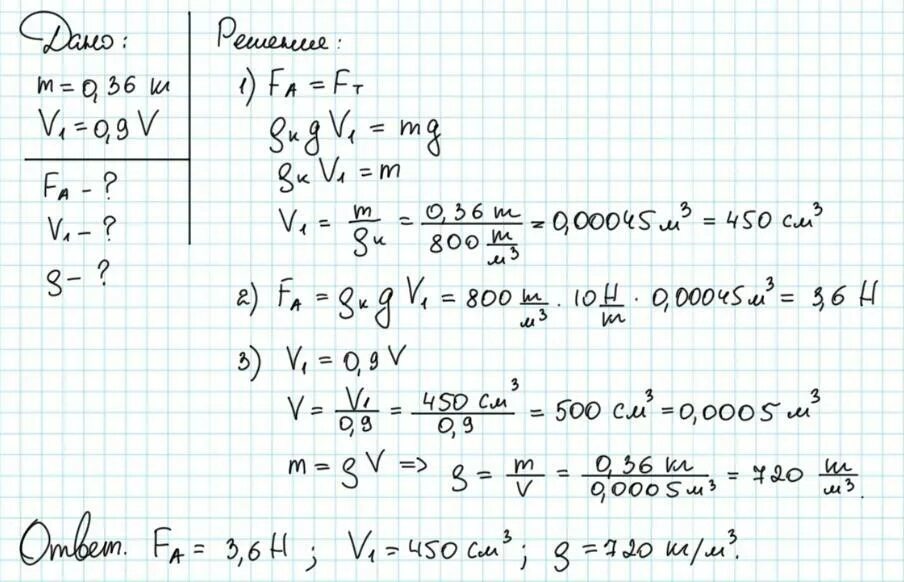 Дано:
m = 0,36 кг
V₁ = 0,9 V
F_A - ?
V₁ - ?
ρ - ?
Решение:
1) F_A = F_т
ρ_к g V₁ = mg
ρ_к V₁ = m
V₁ = m/ρ_к = 0,36 кг / 800 кг/м³ = 0,00045 м³ = 450 см³
2) F_A = ρ_к g V₁ = 800 кг/м³ · 10 Н/кг · 0,00045 м³ = 3,6 Н
3) V₁ = 0,9 V
V = V₁/0,9 = 450 см³/0,9 = 500 см³ = 0,0005 м³
m = ρ V => ρ = m/V = 0,36 кг/0,0005 м³ = 720 кг/м³.
Ответ. F_A = 3,6 Н ; V₁ = 450 см³ ; ρ = 720 кг/м³.